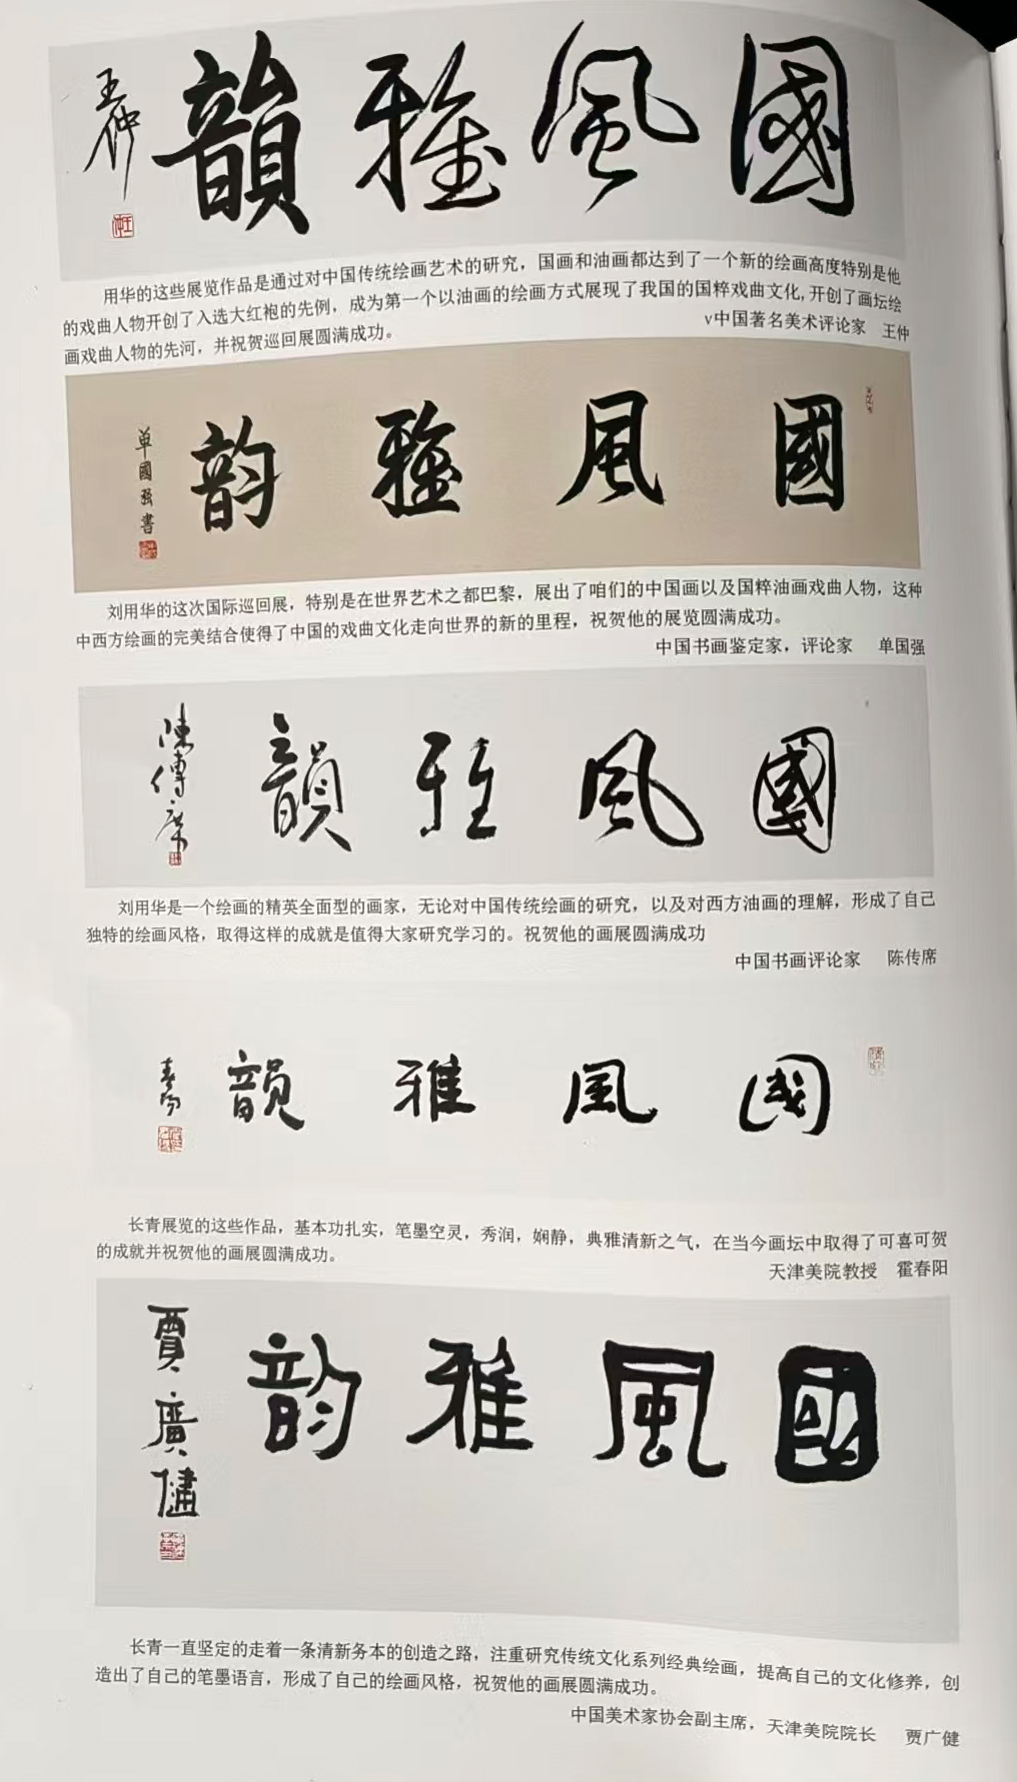 國風雅韻
王仲
用华的这些展览作品是通过对中国传统绘画艺术的研究，国画和油画都达到了一个新的绘画高度特别是他
的戏曲人物开创了入选大红袍的先例，成为第一个以油画的绘画方式展现了我国的国粹戏曲文化,开创了画坛绘
画戏曲人物的先河，并祝贺巡回展圆满成功。
v中国著名美术评论家 王仲
國風雅韵
单國强書
刘用华的这次国际巡回展，特别是在世界艺术之都巴黎，展出了咱们的中国画以及国粹油画戏曲人物，这种
中西方绘画的完美结合使得了中国的戏曲文化走向世界的新的里程，祝贺他的展览圆满成功。
中国书画鉴定家，评论家 单国强
國風雅韻
陳傳席
刘用华是一个绘画的精英全面型的画家，无论对中国传统绘画的研究，以及对西方油画的理解，形成了自己
独特的绘画风格，取得这样的成就是值得大家研究学习的。祝贺他的画展圆满成功
中国书画评论家 陈传席
國風雅韻
春阳
长青展览的这些作品，基本功扎实，笔墨空灵，秀润，娴静，典雅清新之气，在当今画坛中取得了可喜可贺
的成就并祝贺他的画展圆满成功。
天津美院教授 霍春阳
國風雅韵
賈廣健
长青一直坚定的走着一条清新务本的创造之路，注重研究传统文化系列经典绘画，提高自己的文化修养，创
造出了自己的笔墨语言，形成了自己的绘画风格，祝贺他的画展圆满成功。
中国美术家协会副主席，天津美院院长 贾广健